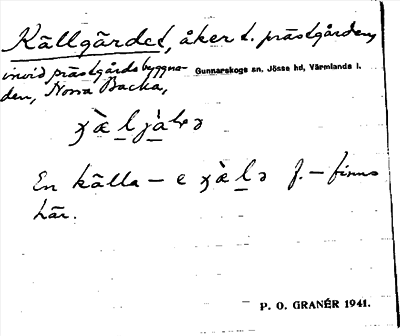 Källgärdet, åker t. prästgården,
invid prästgårdsbyggna-
den, Norra Backa,
Gunnarskogs sn, Jösse hd, Värmlands l.
En källa – e f. – finns
här.
P. O. GRANÉR 1941.